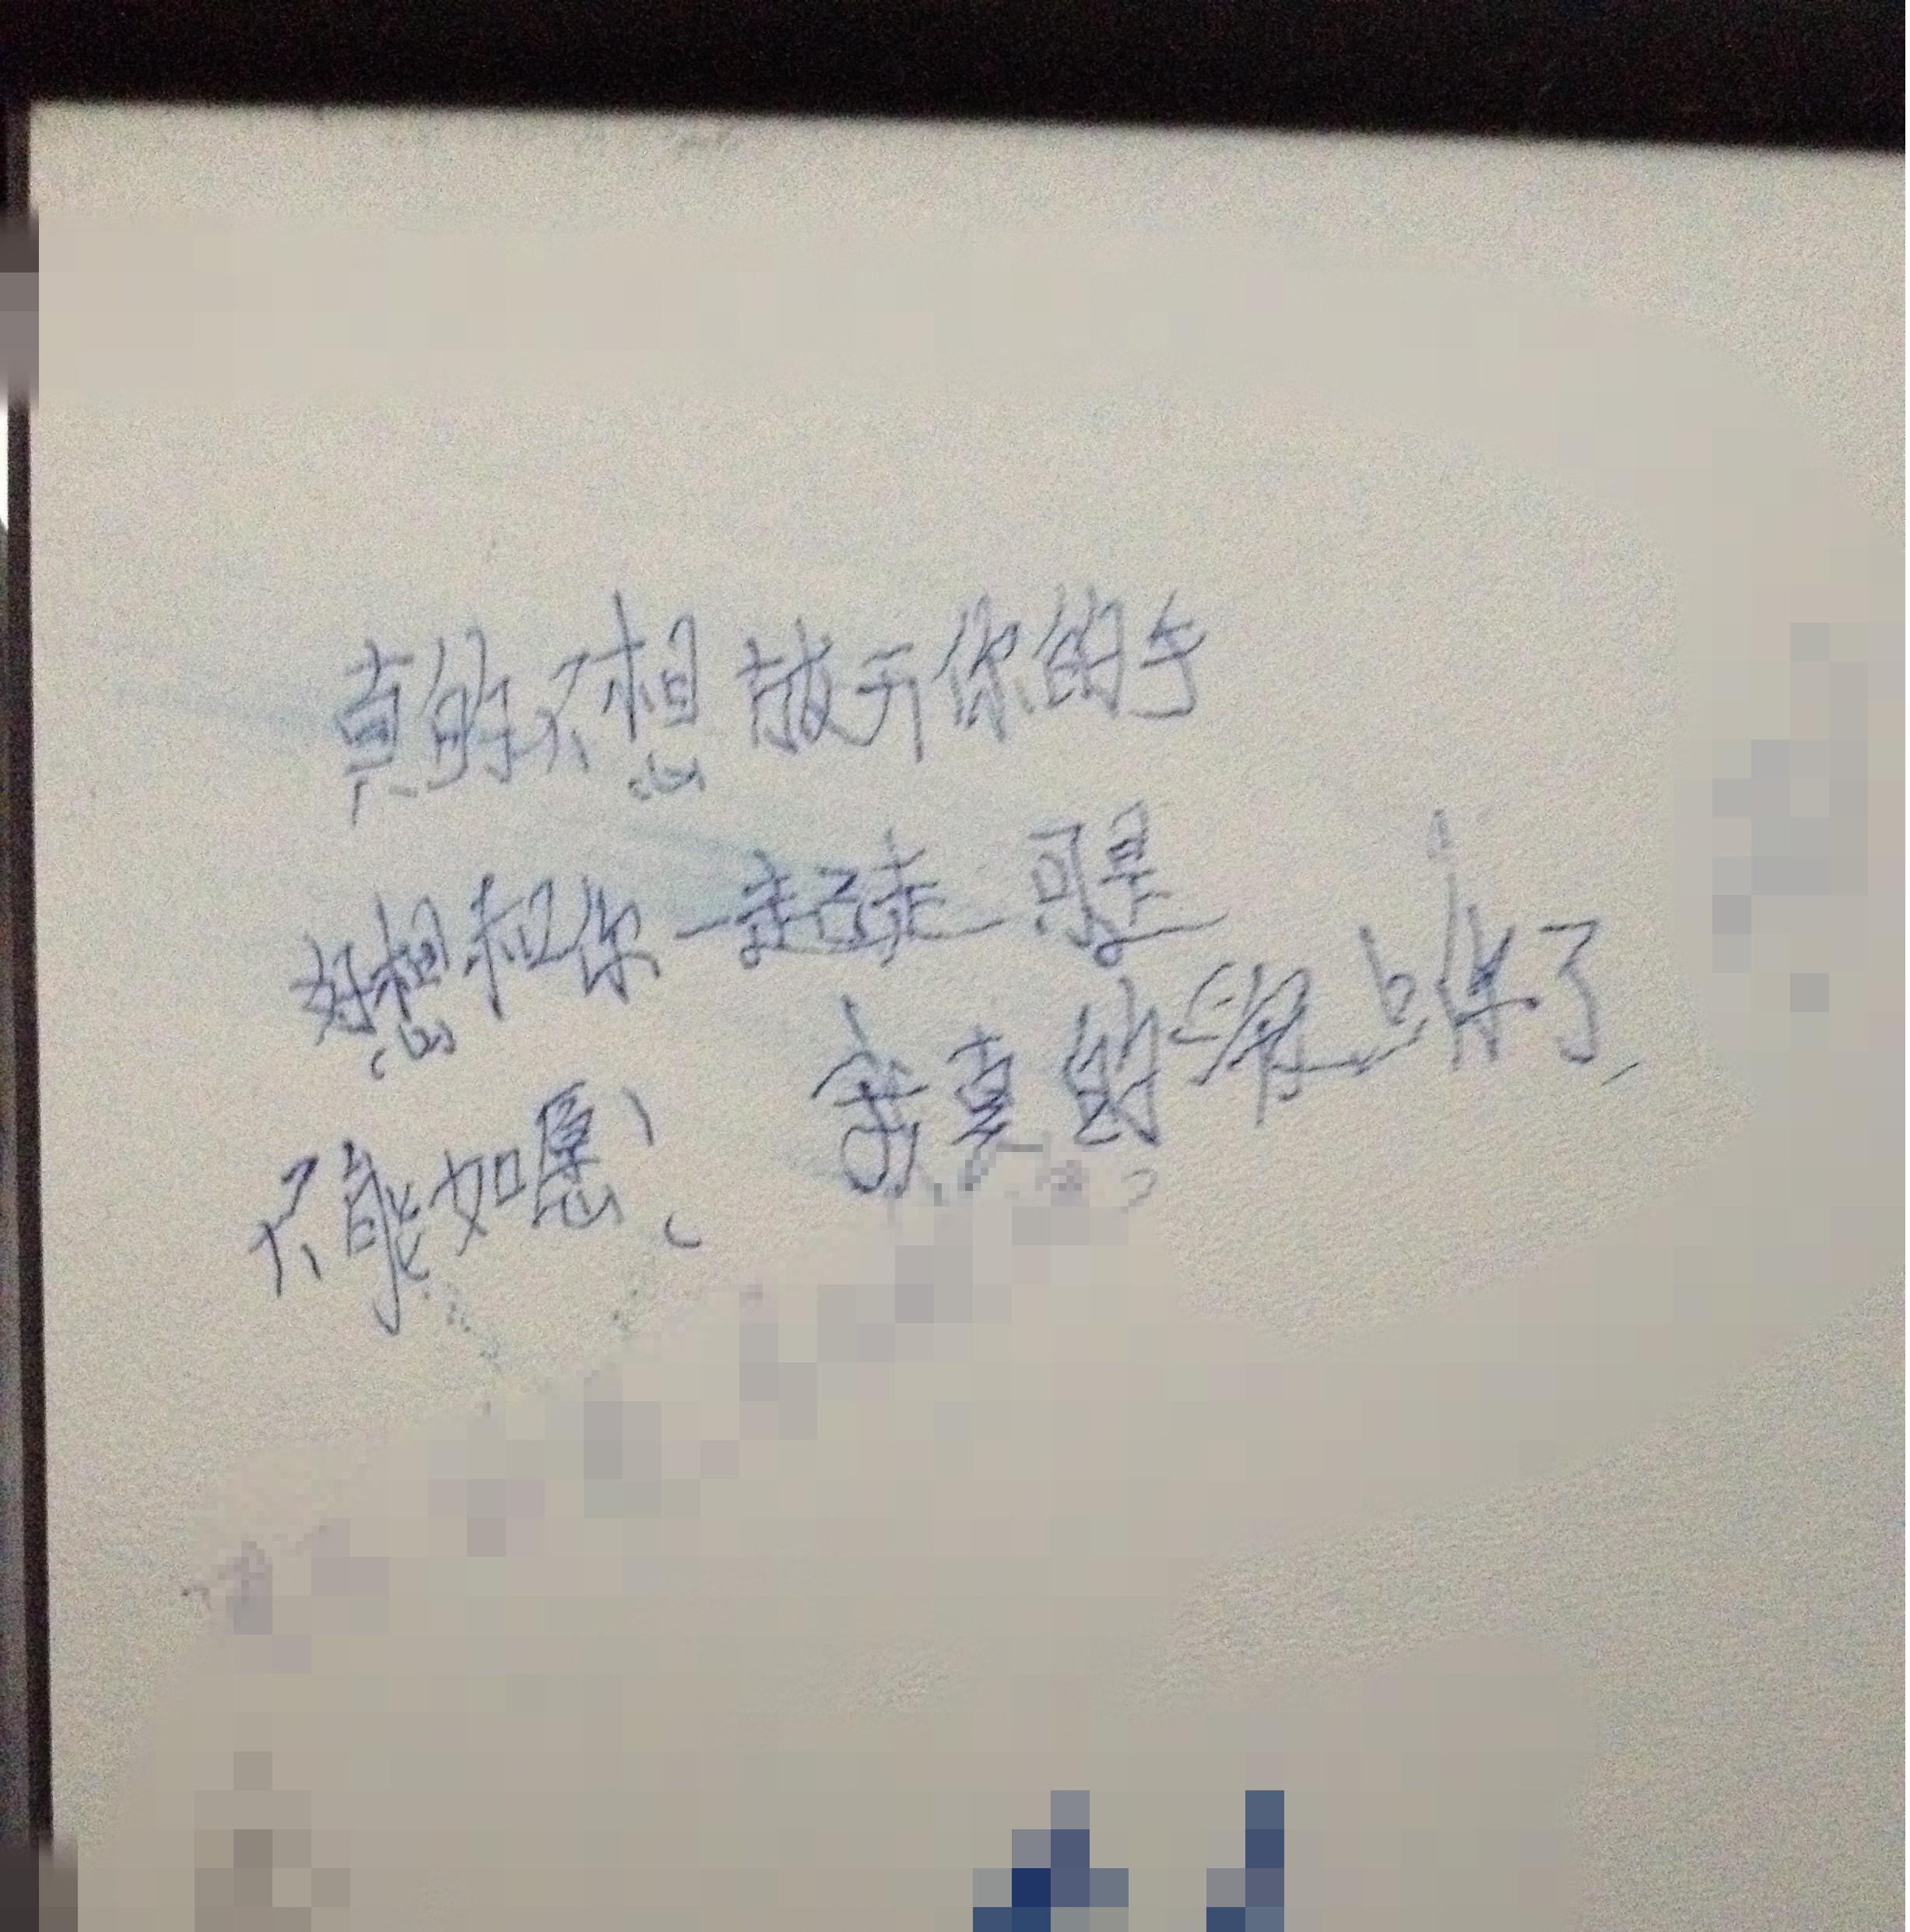 真的不想放开你的手
好想和你一起走 可是
不能如愿！
我真的爱上你了